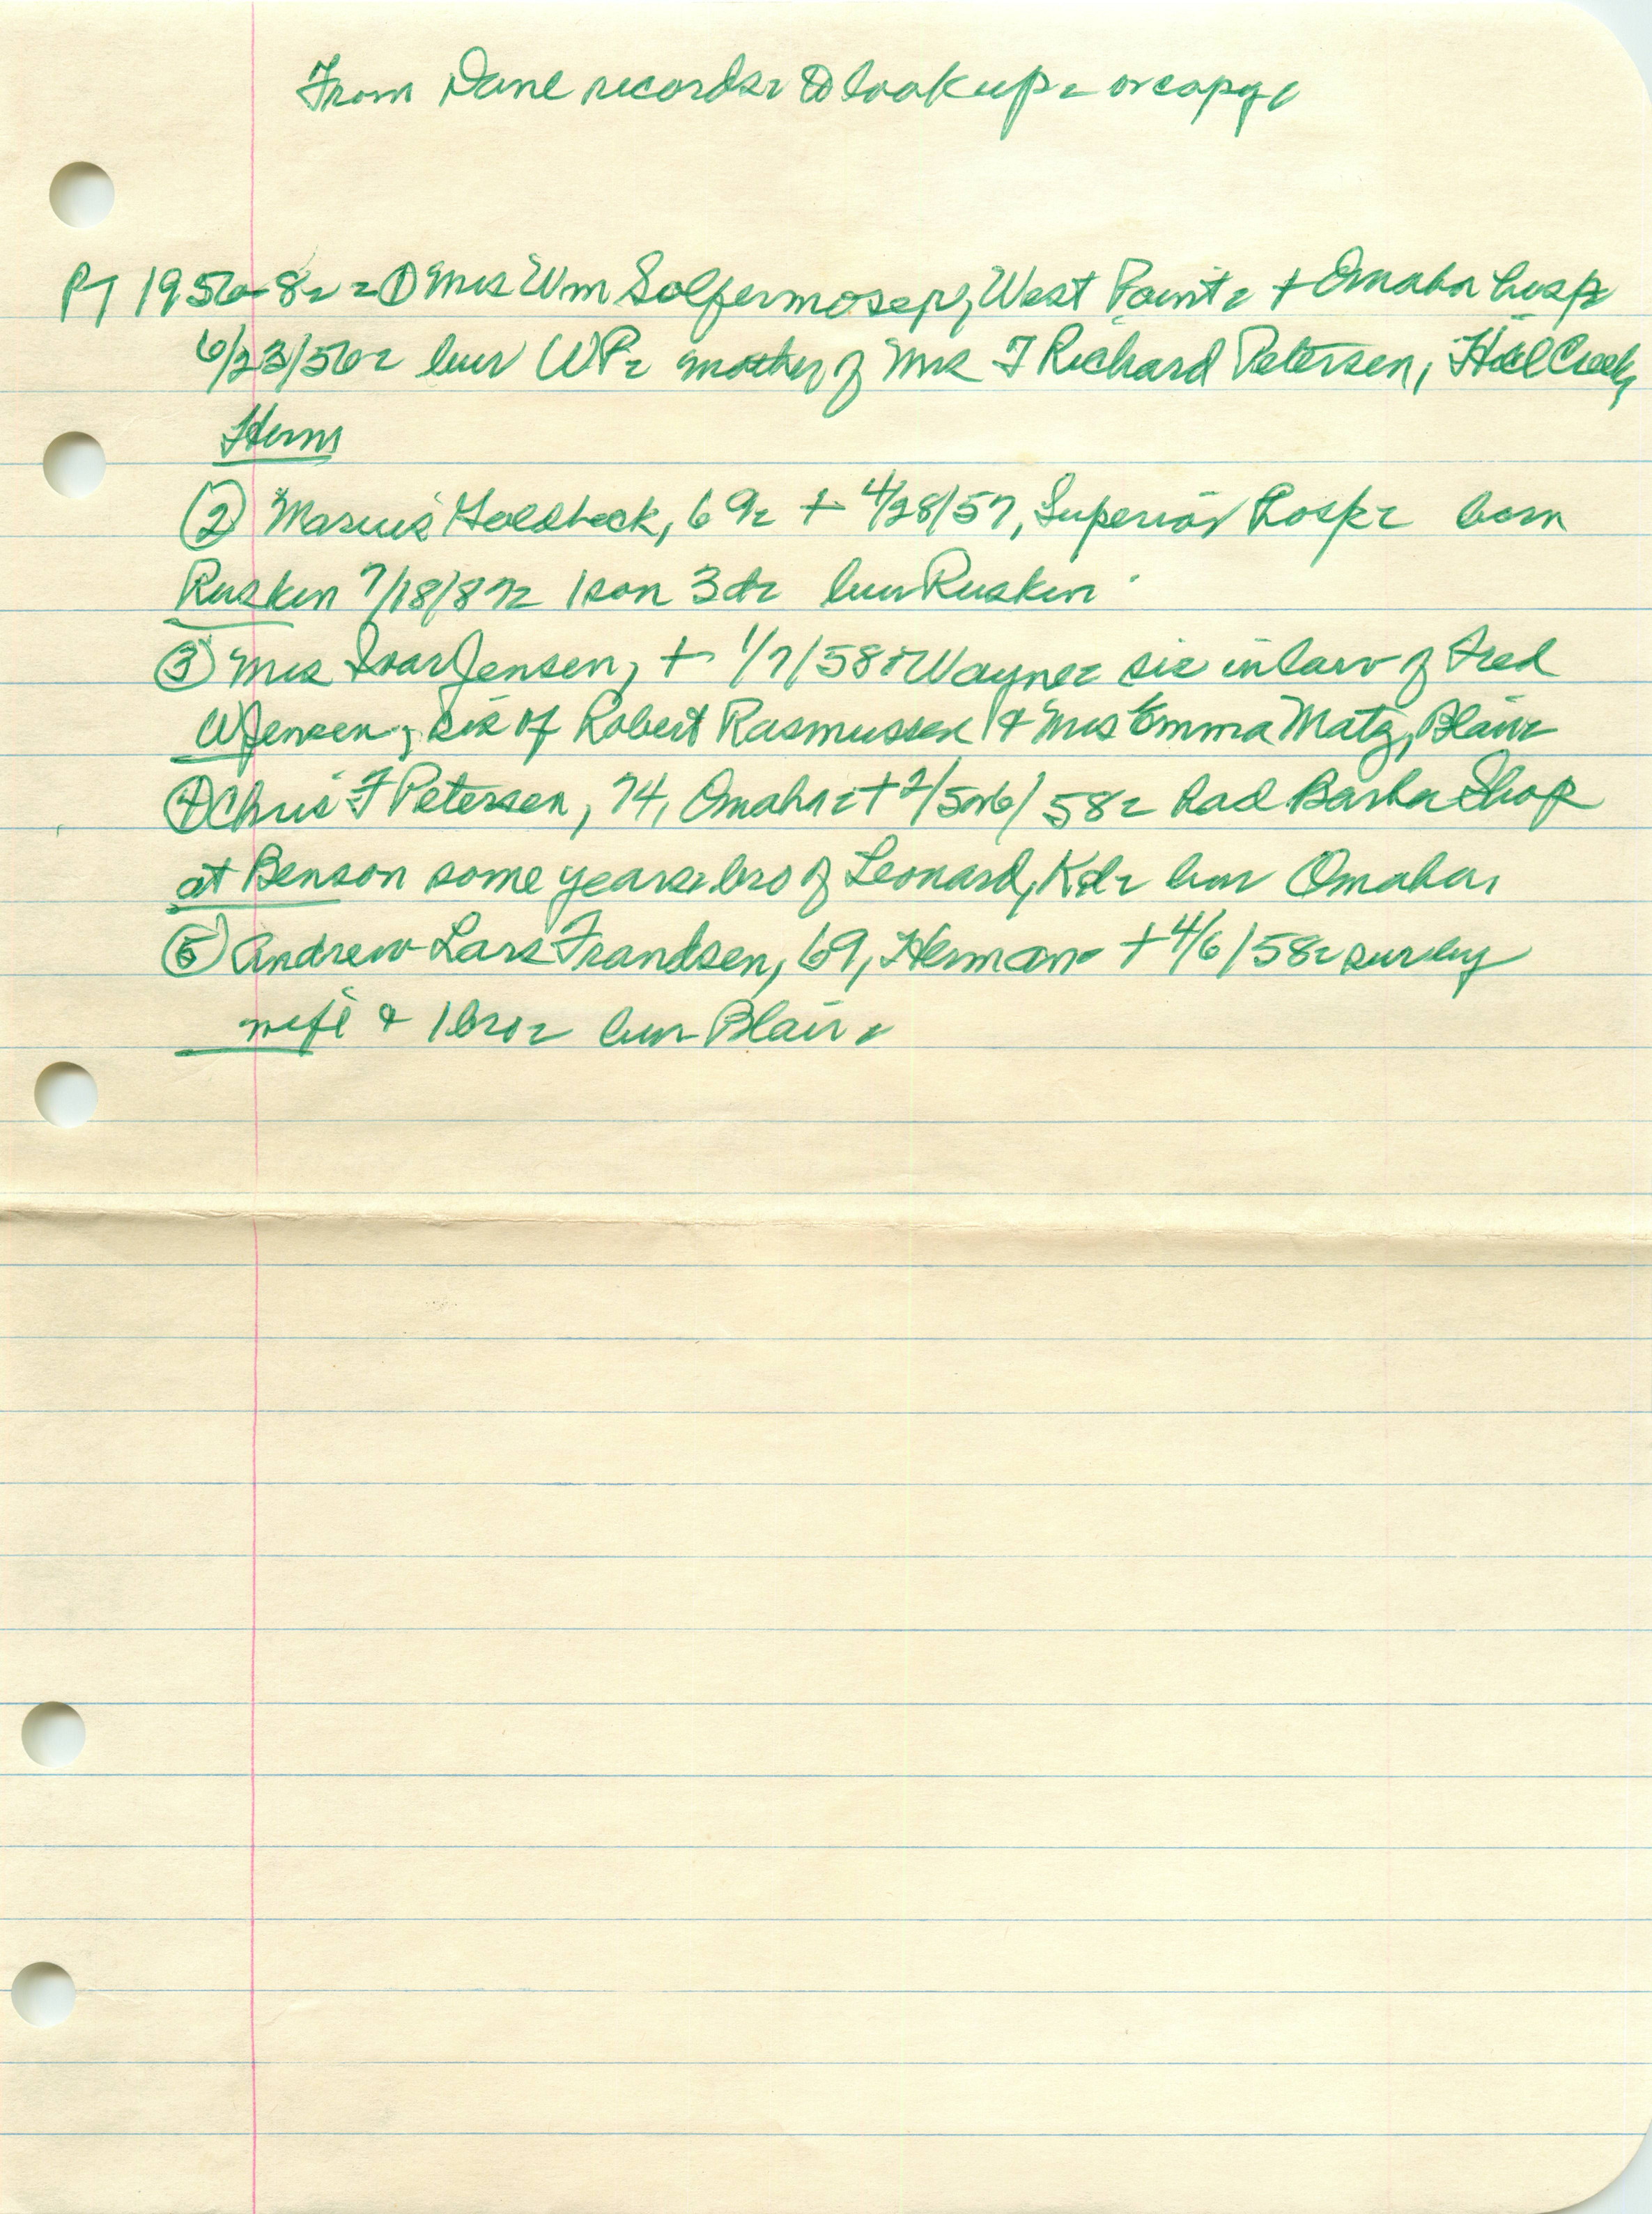 From Dane records to look up or copy
PT 1956-8 ① Mrs Wm Solfermoser, West Point + Omaha hosp
6/23/56 bur WP mother of Mrs F Richard Petersen, Hill Creek,
Herm
② Marius Goldbeck, 69 + 4/28/57, Superior Hosp born
Ruskin 7/18/87 1 son 3 d bur Ruskin
③ Mrs Ivar Jensen, + 1/7/58 Wayne sis in law of Fred
W Jensen, sis of Robert Rasmussen & Mrs Emma Matz, Blair
④ Chris F Petersen, 74, Omaha + 2/5 or 6/58 had Barber Shop
at Benson some years bro of Leonard, Kd bur Omaha
⑤ Andrew Lars Frandsen, 69, Herman + 4/6/58 surv by
wife & 1 bro bur Blair